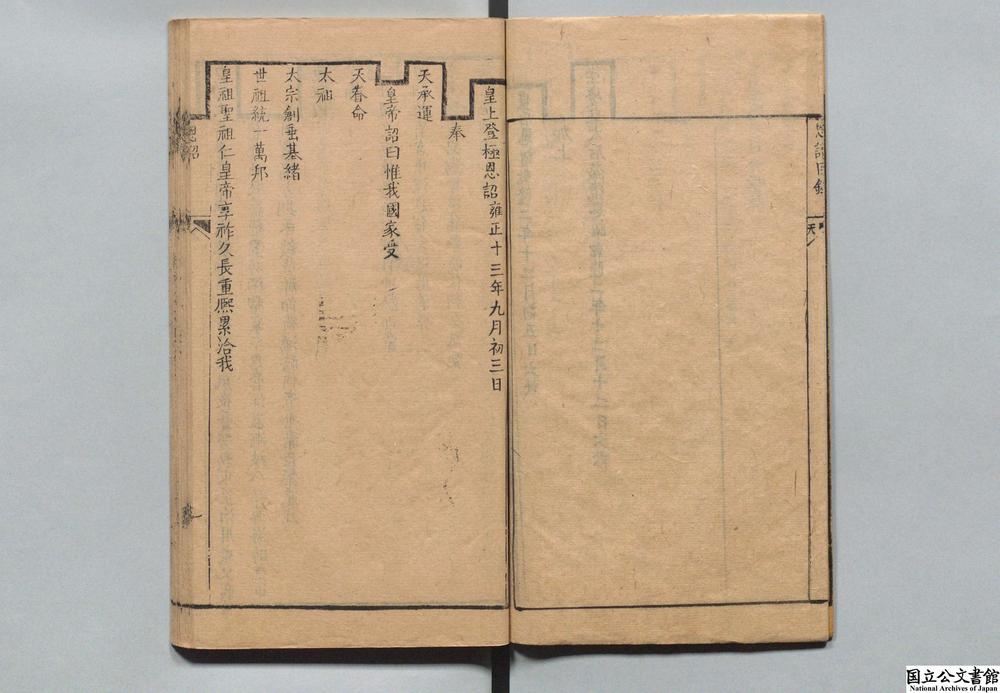 恩詔目錄
皇上登極恩詔雍正十三年九月初三日
奉
天承運
皇帝詔曰惟我國家受
天眷命
太祖
太宗創垂基緒
世祖統一萬邦
皇祖聖祖仁皇帝享祚久長重熈累洽我
恩詔
国立公文書館
National Archives of Japan